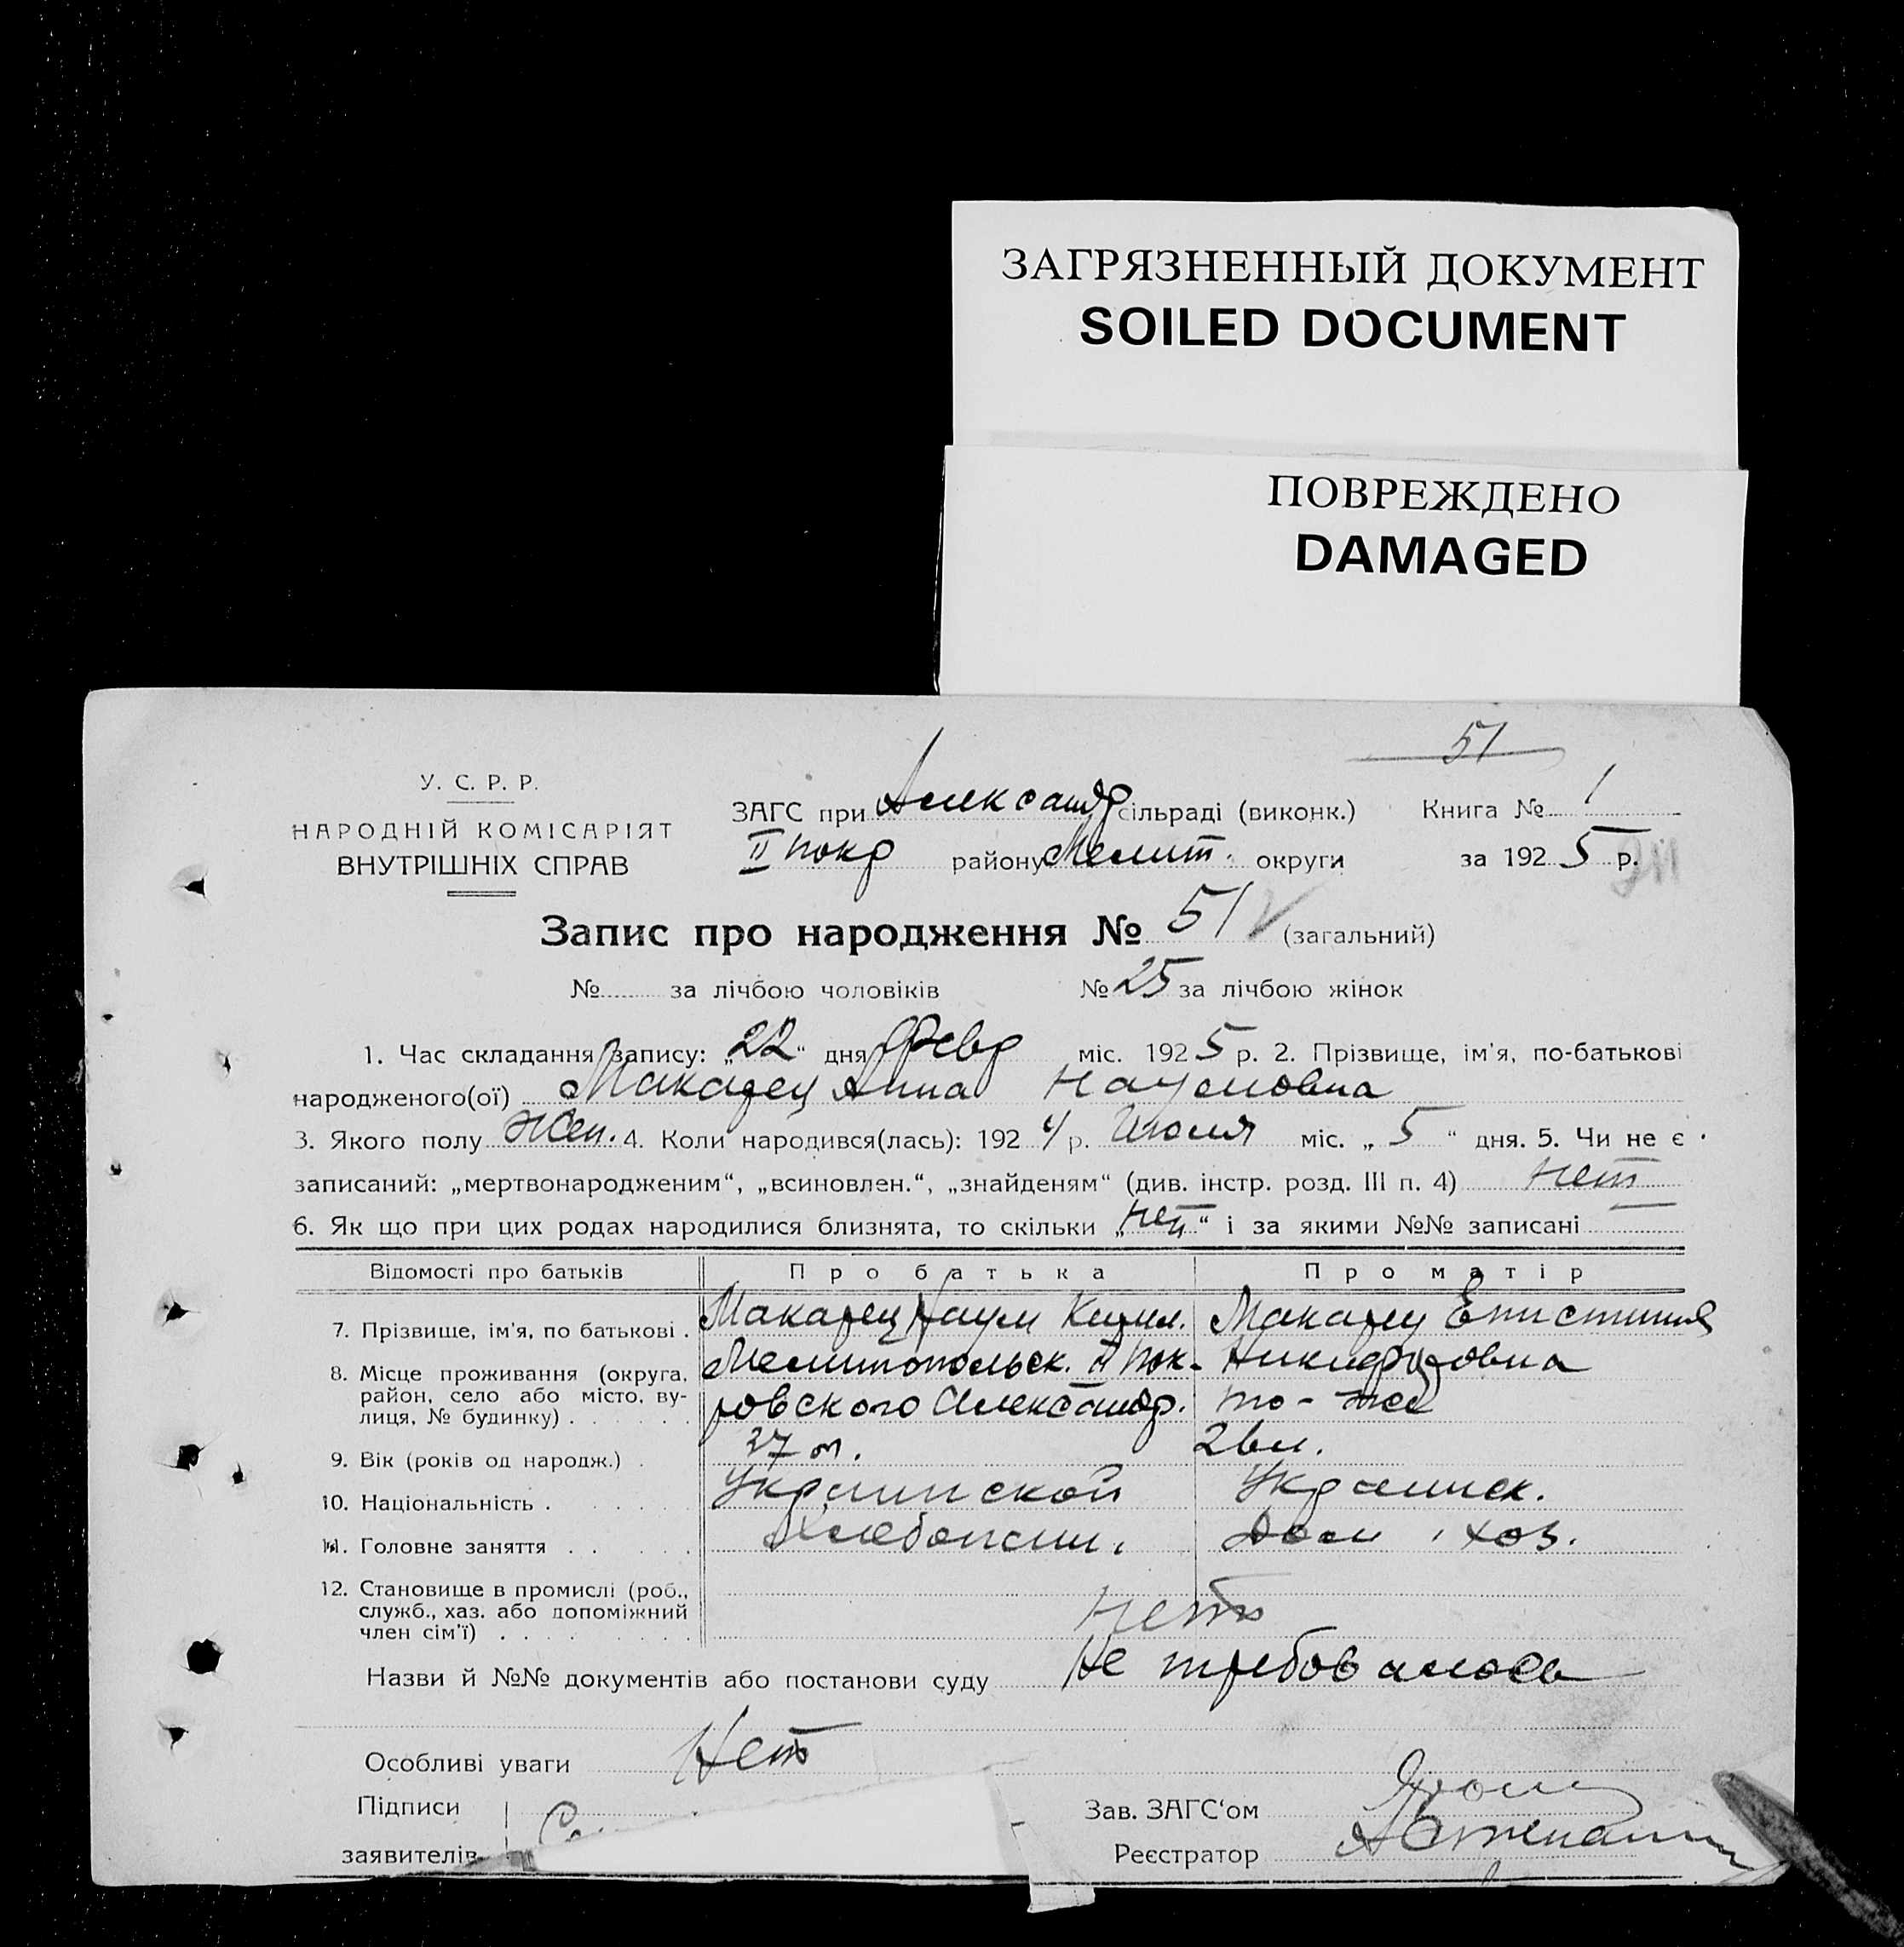 ЗАГРЯЗНЕННЫЙ ДОКУМЕНТ
SOILED DOCUMENT
ПОВРЕЖДЕНО
DAMAGED
51
У. С. Р. Р.
НАРОДНІЙ КОМІСАРІЯТ
ВНУТРІШНІХ СПРАВ
ЗАГС при Александр сільраді (виконк.) Книга № 1
II Покр району Мелит. округи за 1925 р.
Запис про народження № 51 (загальний)
№ за лічбою чоловіків № 25 за лічбою жінок
1. Час складання запису: „22“ дня Февр міс. 1925 р. 2. Прізвище, ім'я, по-батькові
народженого(ої) Макарец Анна Наумовна
3. Якого полу Жен. 4. Коли народився(лась): 1924 р. Июля міс. „5“ дня. 5. Чи не є
записаний: „мертвонародженим“, „всиновлен.“, „знайденям“ (див. інстр. розд. III п. 4) Нет
6. Як що при цих родах народилися близнята, то скільки „Нет“ і за якими №№ записані
Відомості про батьків Про батька Про матір
7. Прізвище, ім'я, по батькові . Макарец Наум Макарец Епистиния
8. Місце проживання (округа, Мелитопольск. II Пок- Никифоровна
район, село або місто, ву- ровского Александр. то-же
лиця, № будинку) . . . . .
9. Вік (років од народж.) . 37 л. 26 л.
10. Національність . . . . . Украинской Украинск.
11. Головне заняття . . . . Хлебопаш. Дом. хоз.
12. Становище в промислі (роб.,
служб., хаз. або допоміжний Нет
член сім'ї) . . . . . . . .
Назви й №№ документів або постанови суду Не требовалось
Особливі уваги Нет
Підписи
Зав. ЗАГС'ом
заявителів
Реєстратор